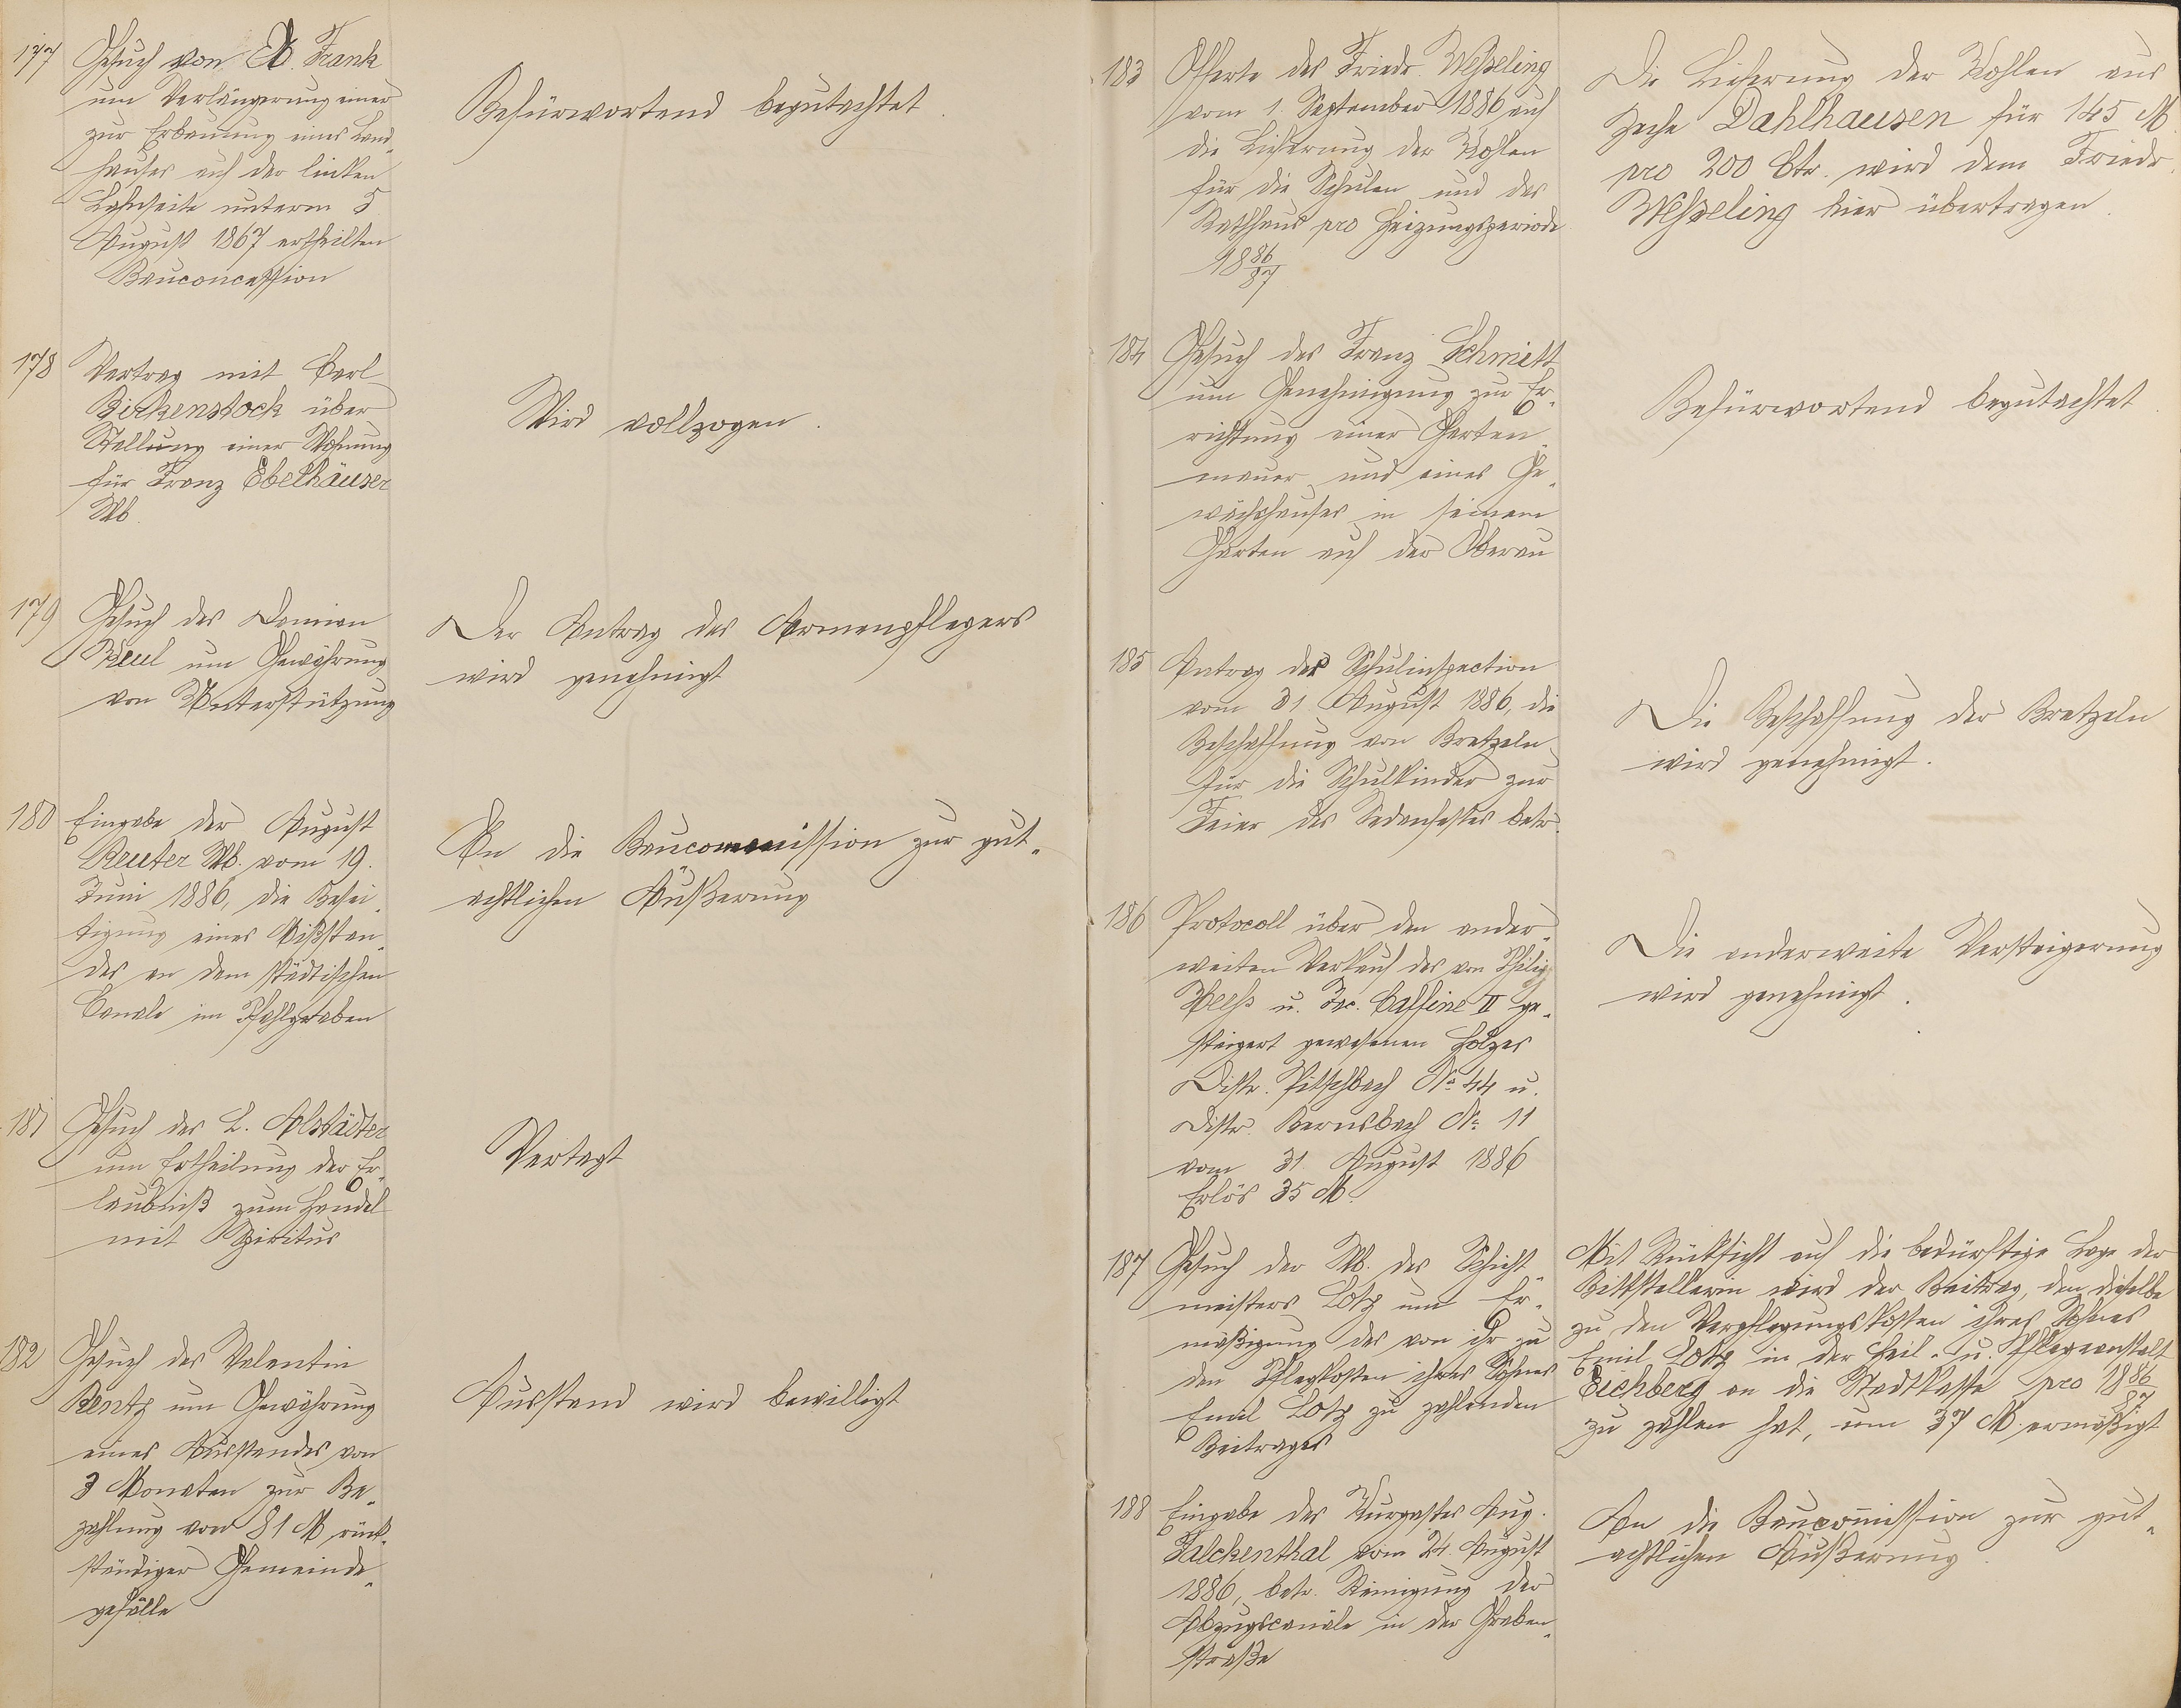 177
Gesuch von A. Frank
um Verlängerung einer
zur Erbauung eines Land„
hauses auf der linken
Lahnseite unterm 5
August 1867 ertheilten
Bauconcession
Befürwortend begutachtet.
178
Vertrag mit Carl
Birkenstock über
Stellung einer Wohnung
für Franz Ebelhäuser
Wb.
Wird vollzogen.
179
Gesuch des Damian
Beul um Gewährung
von Unterstützung
Der Antrag des Armenpflegers
wird genehmigt
180
Eingabe der August
Reuter Wb. vom 19.
Juni 1886, die Besei„
tigung eines Mißstan„
des an dem städtischen
Canale im Pfahlgraben
An die Baucommission zur gut„
achtlichen Äußerung
181
Gesuch des L. Alstädter
um Ertheilung der Er„
laubniß zum Handel
mit Spiritus
Vertagt
182
Gesuch des Valentin
Rentz um Gewährung
eines Ausstandes von
3 Monaten zur Be„
zahlung von 81 M rück„
ständiger Gemeinde„
gefälle
Ausstand wird bewilligt
183
Offerte des Friedr. Weßeling
vom 1. September 1886 auf
die Lieferung der Kohlen
für die Schulen und das
Rathhaus pro Heizungsperiode
1886/87
Die Lieferung der Kohlen aus
Zeche Dahlhausen für 145 M.
pro 200 Ctr. wird dem Friedr.
Weßeling hier übertragen.
184
Gesuch des Franz Schmitt
um Genehmigung zur Er„
richtung einer Garten„
mauer und eines Ge„
wächshauses in seinem
Garten auf der Oberau
Befürwortend begutachtet.
185
Antrag der Schulinspection
vom 31. August 1886, die
Beschaffung von Bretzeln
für die Schulkinder zur
Feier des Sedanfestes betr.
Die Beschaffung der Bretzeln
wird genehmigt.
186
Protocoll über den ander„
weiten Verkauf des von Philip
Heeß u. Jac. Caffine II ge„
steigert gewesenen Holzes
Distr. Pitschbach No 44 u.
Distr. Bernsbach No 11
vom 31. August 1886
Erlös 35 M.
Die anderweite Versteigerung
wird genehmigt.
187
Gesuch der Wb. des Schicht„
meisters Lotz um Er„
mäßigung des von ihr zu
den Pflegkosten ihres Sohnes
Emil Lotz zu zahlenden
Beitrages
Mit Rücksicht auf die bedürftige Lage der
Bittstellerin wird der Beitrag, den dieselbe
zu den Verpflegungskosten ihres Sohnes
Emil Lotz in der Heil- u. Pflegeanstalt
Eichberg an die Stadtkasse pro 1886/87
zu zahlen hat, um 37 M. ermäßigt
188
Eingabe des Kurgastes Aug.
Falckenthal vom 24. August
1886, betr. Reinigung der
Abzugscanäle in der Graben„
straße
An die Baucom̄ission zur gut„
achtlichen Äußerung.